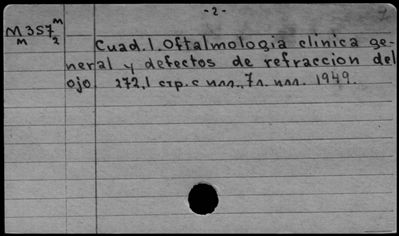 -2-
M 357 M
M 2
Cuad.1.Oftalmologia clinica ge-
neral y defectos de refraccion del
ojo. 272,1 стр. с илл., 7л. илл. 1949.